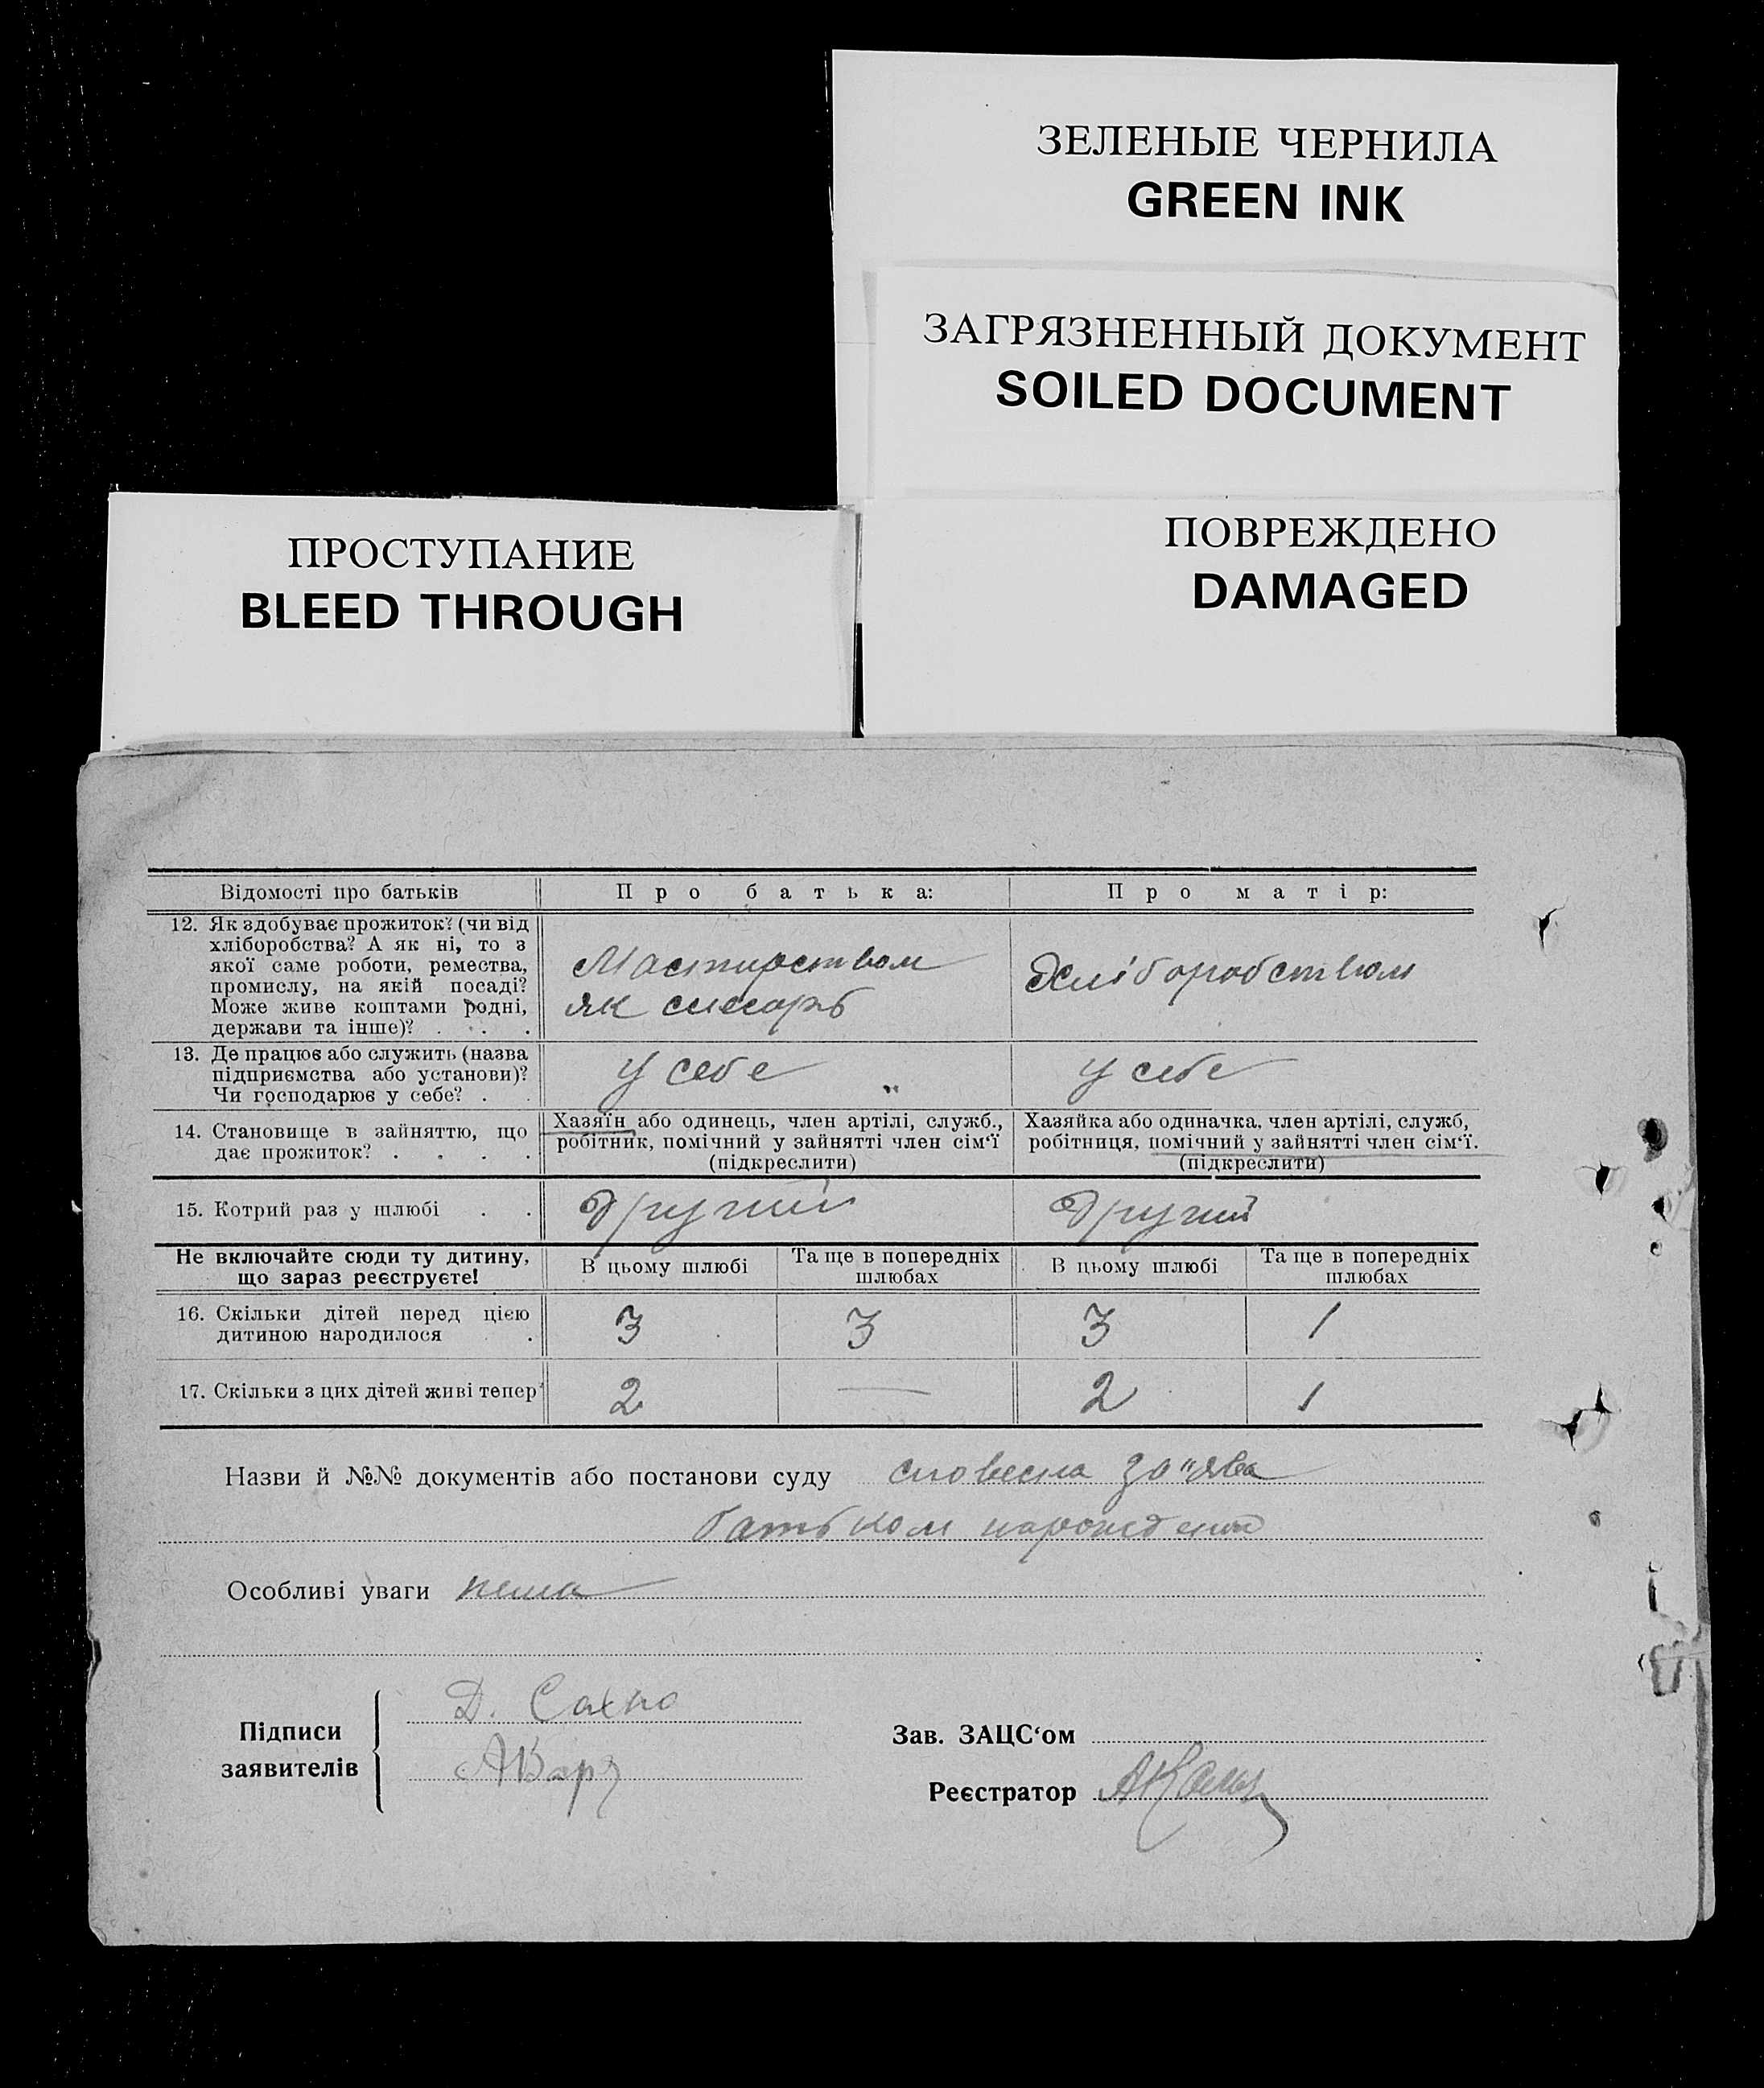 ЗЕЛЕНЫЕ ЧЕРНИЛА
GREEN INK
ЗАГРЯЗНЕННЫЙ ДОКУМЕНТ
SOILED DOCUMENT
ПРОСТУПАНИЕ
BLEED THROUGH
ПОВРЕЖДЕНО
DAMAGED
Відомості про батьків Про батька: Про матір:
12. Як здобуває прожиток? (чи від
хліборобства? А як ні, то з
якої саме роботи, ремества,
промислу, на якій посаді?
Може живе коштами родні,
держави та інше)? . . .
Мастирством
як слесарь
Хліборобством
13. Де працює або служить (назва
підприємства або установи)?
Чи господарює у себе? . .
у себе
у себе
14. Становище в зайняттю, що
дає прожиток? . . . .
Хазяїн або одинець, член артілі, служб.,
робітник, помічний у зайнятті член сім‘ї
(підкреслити)
Хазяйка або одиначка, член артілі, служб,
робітниця, помічний у зайнятті член сім‘ї.
(підкреслити)
15. Котрий раз у шлюбі . . другий другий
Не включайте сюди ту дитину,
що зараз реєструєте!
В цьому шлюбі Та ще в попередніх
шлюбах
В цьому шлюбі Та ще в попередніх
шлюбах
16. Скільки дітей перед цією
дитиною народилося .
3 3 3 1
17. Скільки з цих дітей живі тепер 2 — 2 1
Назви й №№ документів або постанови суду словесна за"ява
батьком
Особливі уваги нема
Підписи
заявителів
Д. Сахно
Зав. ЗАЦС‘ом
Реєстратор